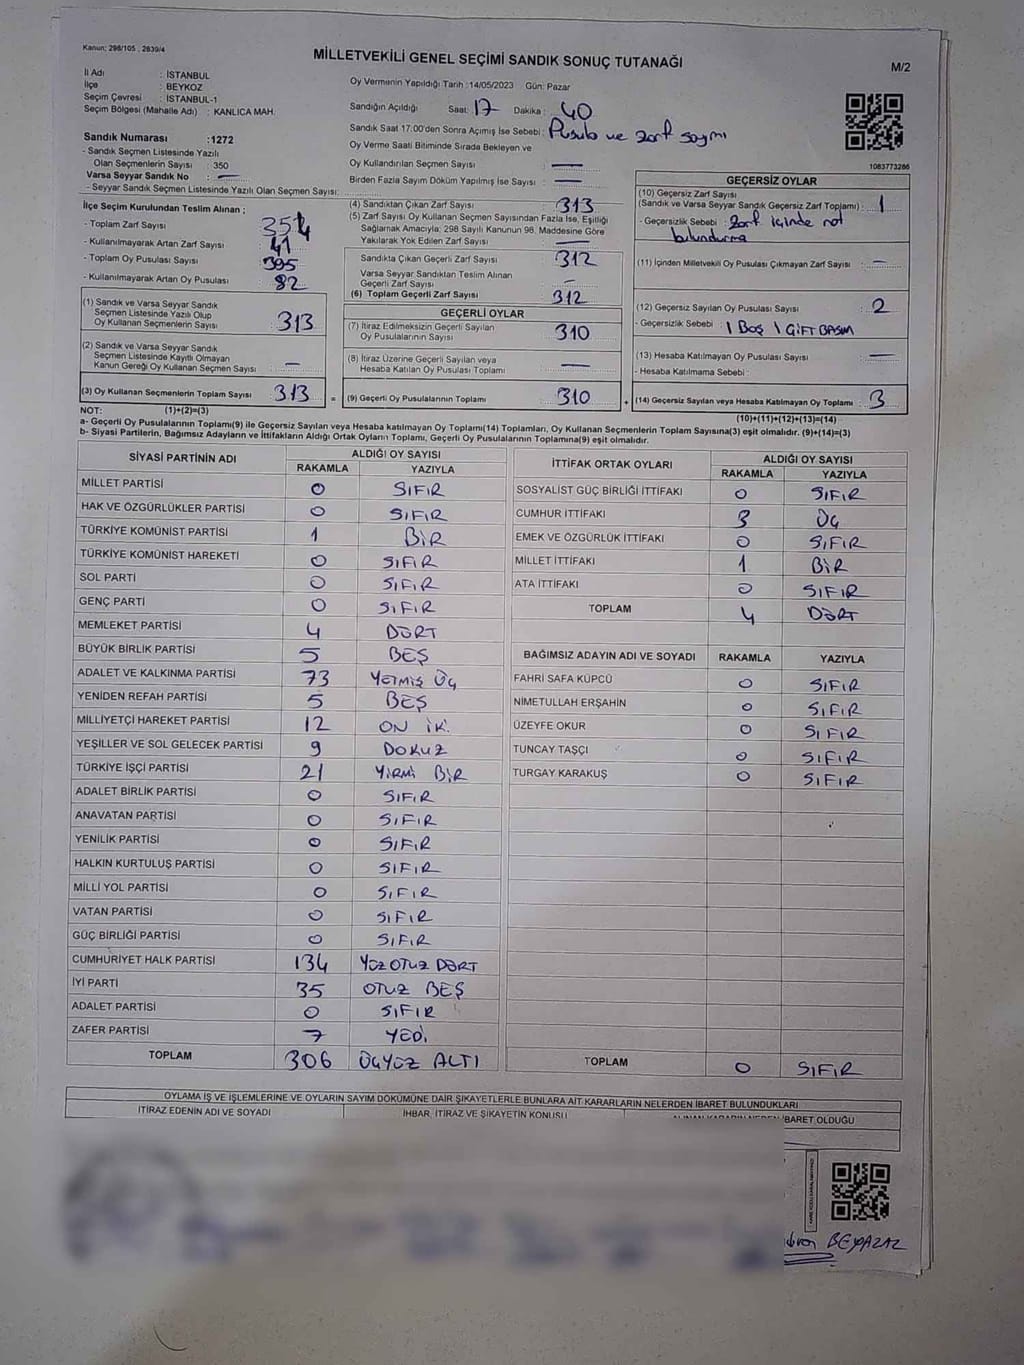 Kanun: 298/105 , 2839/4
MİLLETVEKİLİ GENEL SEÇİMİ SANDIK SONUÇ TUTANAĞI
M/2
İl Adı : İSTANBUL
İlçe : BEYKOZ
Seçim Çevresi : İSTANBUL-1
Seçim Bölgesi (Mahalle Adı) : KANLICA MAH.
Sandık Numarası :1272
- Sandık Seçmen Listesinde Yazılı
Olan Seçmenlerin Sayısı : 350
Varsa Seyyar Sandık No : —
- Seyyar Sandık Seçmen Listesinde Yazılı Olan Seçmen Sayısı:
Oy Vermenin Yapıldığı Tarih :14/05/2023 Gün: Pazar
Sandığın Açıldığı Saat: 17 Dakika : 40
Sandık Saat 17:00'den Sonra Açılmış İse Sebebi : Pusula ve zarf sayımı
Oy Verme Saati Bitiminde Sırada Bekleyen ve
Oy Kullandırılan Seçmen Sayısı : —
Birden Fazla Sayım Döküm Yapılmış İse Sayısı : —
1083773286
İlçe Seçim Kurulundan Teslim Alınan ;
- Toplam Zarf Sayısı 354
- Kullanılmayarak Artan Zarf Sayısı 41
- Toplam Oy Pusulası Sayısı 395
- Kullanılmayarak Artan Oy Pusulası 82
(1) Sandık ve Varsa Seyyar Sandık
Seçmen Listesinde Yazılı Olup
Oy Kullanan Seçmenlerin Sayısı 313
(2) Sandık ve Varsa Seyyar Sandık
Seçmen Listesinde Kayıtlı Olmayan
Kanun Gereği Oy Kullanan Seçmen Sayısı —
(3) Oy Kullanan Seçmenlerin Toplam Sayısı 313 =
(4) Sandıktan Çıkan Zarf Sayısı 313
(5) Zarf Sayısı Oy Kullanan Seçmen Sayısından Fazla İse, Eşitliği
Sağlamak Amacıyla; 298 Sayılı Kanunun 98. Maddesine Göre
Yakılarak Yok Edilen Zarf Sayısı —
Sandıkta Çıkan Geçerli Zarf Sayısı 312
Varsa Seyyar Sandıktan Teslim Alınan
Geçerli Zarf Sayısı —
(6) Toplam Geçerli Zarf Sayısı 312
GEÇERLİ OYLAR
(7) İtiraz Edilmeksizin Geçerli Sayılan
Oy Pusulalarının Sayısı 310
(8) İtiraz Üzerine Geçerli Sayılan veya
Hesaba Katılan Oy Pusulası Toplamı —
(9) Geçerli Oy Pusulalarının Toplamı 310 +
GEÇERSİZ OYLAR
(10) Geçersiz Zarf Sayısı
(Sandık ve Varsa Seyyar Sandık Geçersiz Zarf Toplamı) : 1
- Geçersizlik Sebebi : Zarf içinde not
bulundurma
(11) İçinden Milletvekili Oy Pusulası Çıkmayan Zarf Sayısı : —
(12) Geçersiz Sayılan Oy Pusulası Sayısı : 2
- Geçersizlik Sebebi : 1 BOŞ 1 ÇİFT BASIM
(13) Hesaba Katılmayan Oy Pusulası Sayısı : —
- Hesaba Katılmama Sebebi :
(14) Geçersiz Sayılan veya Hesaba Katılmayan Oy Toplamı : 3
NOT: (1)+(2)=(3)
(10)+(11)+(12)+(13)=(14)
a- Geçerli Oy Pusulalarının Toplamı(9) ile Geçersiz Sayılan veya Hesaba katılmayan Oy Toplamı(14) Toplamları, Oy Kullanan Seçmenlerin Toplam Sayısına(3) eşit olmalıdır. (9)+(14)=(3)
b- Siyasi Partilerin, Bağımsız Adayların ve İttifakların Aldığı Ortak Oyların Toplamı, Geçerli Oy Pusulalarının Toplamına(9) eşit olmalıdır.
SİYASİ PARTİNİN ADI ALDIĞI OY SAYISI
RAKAMLA YAZIYLA
MİLLET PARTİSİ 0 SIFIR
HAK VE ÖZGÜRLÜKLER PARTİSİ 0 SIFIR
TÜRKİYE KOMÜNİST PARTİSİ 1 BİR
TÜRKİYE KOMÜNİST HAREKETİ 0 SIFIR
SOL PARTİ 0 SIFIR
GENÇ PARTİ 0 SIFIR
MEMLEKET PARTİSİ 4 DÖRT
BÜYÜK BİRLİK PARTİSİ 5 BEŞ
ADALET VE KALKINMA PARTİSİ 73 YETMİŞ ÜÇ
YENİDEN REFAH PARTİSİ 5 BEŞ
MİLLİYETÇİ HAREKET PARTİSİ 12 ON İKİ
YEŞİLLER VE SOL GELECEK PARTİSİ 9 DOKUZ
TÜRKİYE İŞÇİ PARTİSİ 21 YİRMİ BİR
ADALET BİRLİK PARTİSİ 0 SIFIR
ANAVATAN PARTİSİ 0 SIFIR
YENİLİK PARTİSİ 0 SIFIR
HALKIN KURTULUŞ PARTİSİ 0 SIFIR
MİLLİ YOL PARTİSİ 0 SIFIR
VATAN PARTİSİ 0 SIFIR
GÜÇ BİRLİĞİ PARTİSİ 0 SIFIR
CUMHURİYET HALK PARTİSİ 134 YÜZ OTUZ DÖRT
İYİ PARTİ 35 OTUZ BEŞ
ADALET PARTİSİ 0 SIFIR
ZAFER PARTİSİ 7 YEDİ
TOPLAM 306 ÜÇYÜZ ALTI
İTTİFAK ORTAK OYLARI ALDIĞI OY SAYISI
RAKAMLA YAZIYLA
SOSYALİST GÜÇ BİRLİĞİ İTTİFAKI 0 SIFIR
CUMHUR İTTİFAKI 3 ÜÇ
EMEK VE ÖZGÜRLÜK İTTİFAKI 0 SIFIR
MİLLET İTTİFAKI 1 BİR
ATA İTTİFAKI 0 SIFIR
TOPLAM 4 DÖRT
BAĞIMSIZ ADAYIN ADI VE SOYADI RAKAMLA YAZIYLA
FAHRİ SAFA KÜPCÜ 0 SIFIR
NİMETULLAH ERŞAHİN 0 SIFIR
ÜZEYFE OKUR 0 SIFIR
TUNCAY TAŞÇI 0 SIFIR
TURGAY KARAKUŞ 0 SIFIR
TOPLAM 0 SIFIR
OYLAMA İŞ VE İŞLEMLERİNE VE OYLARIN SAYIM DÖKÜMÜNE DAİR ŞİKAYETLERLE BUNLARA AİT KARARLARIN NELERDEN İBARET BULUNDUKLARI
İTİRAZ EDENİN ADI VE SOYADI İHBAR, İTİRAZ VE ŞİKAYETİN KONUSU ALINAN KARARIN NEDEN İBARET OLDUĞU
BEYAZAZ